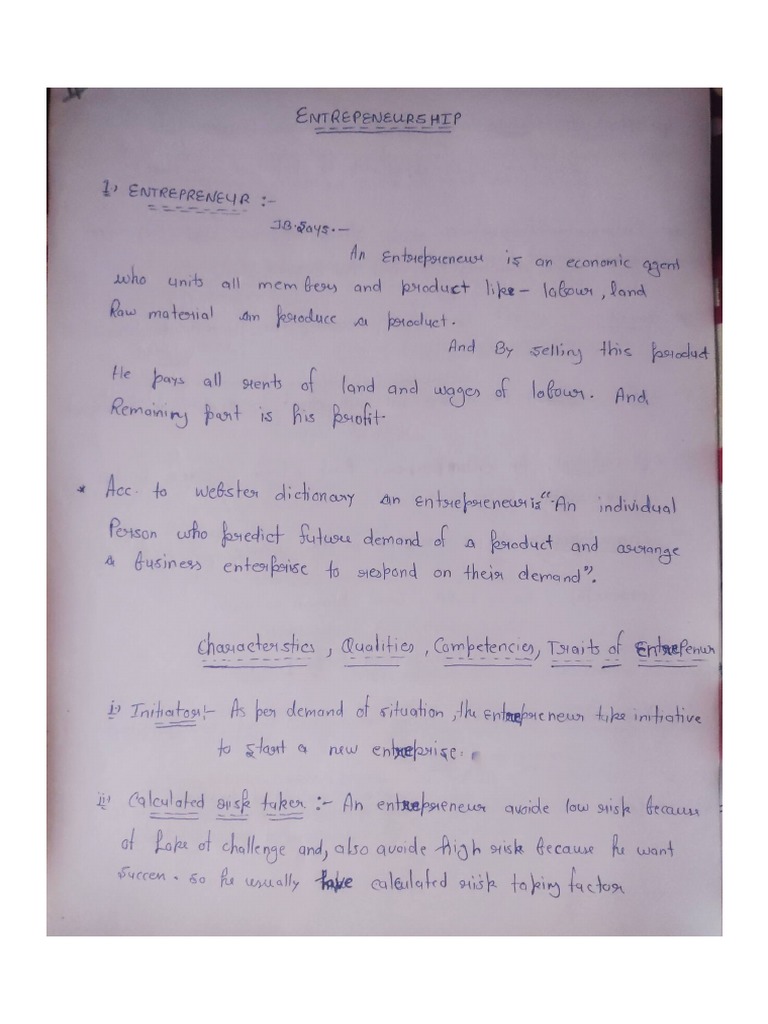 ENTREPENEURSHIP
1) ENTREPRENEUR :-
J.B. Says. -
An Entrepreneur is an economic agent
who units all members and product like - labour, land
Raw material an produce a product.
And By selling this product
He pays all rents of land and wages of labour. And,
Remaining part is his profit.
* Acc. to webster dictionary an entrepreneur is "An individual
Person who predict future demand of a product and arrange
a business enterprise to respond on their demand".
Characteristics, Qualities, Competencies, Traits of Entrepenur
i) Initiator:- As per demand of situation, the entrepreneur take initiative
to start a new entreprise.
ii) Calculated risk taker :- An entrepreneur avoide low risk because
of Lake of challenge and, also avoide high risk because he want
succen. so he usually take calculated risk taking factor